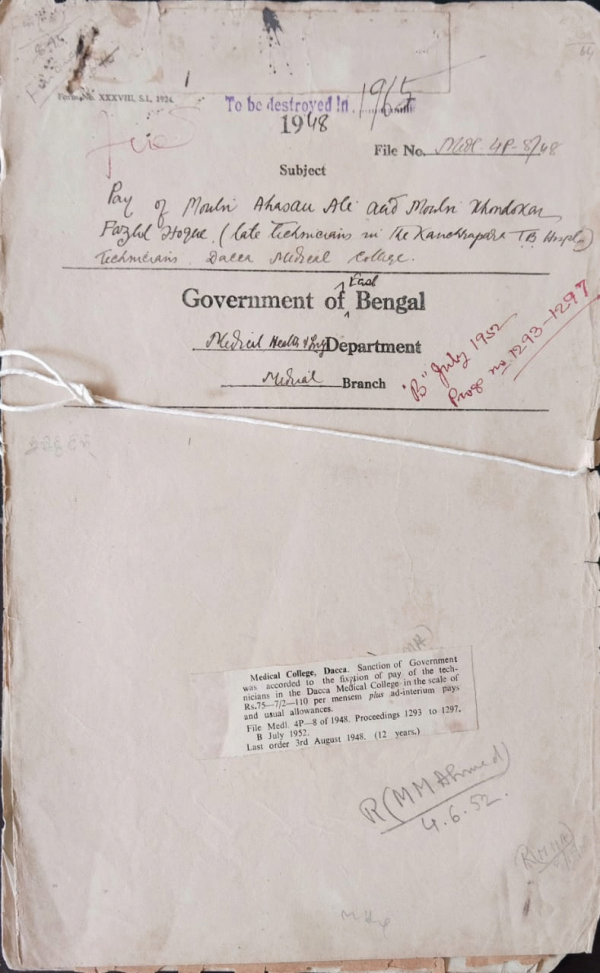 Form No. XXXVIII, S.I., 1924.
To be destroyed in 1965
1948
File No. Medl. 4P-8/48
Subject
Pay of Moulvi Ahasan Ali and Moulvi Khondokar
Fazlul Hoque (late technicians in the Kanchrapara TB Hospl)
Technicians Dacca Medical College.
East
Government of ^ Bengal
Medical Health & Department
Medical Branch
"B" July 1952
Progs no. 1293-1297
Medical College, Dacca. Sanction of Government
was accorded to the fixation of pay of the tech-
nicians in the Dacca Medical College in the scale of
Rs.75—7/2—110 per mensem plus ad-interium pays
and usual allowances.
File Medl. 4P—8 of 1948. Proceedings 1293 to 1297.
B July 1952.
Last order 3rd August 1948. (12 years.)
R(MMAhmed)
4.6.52.
R(MMA)